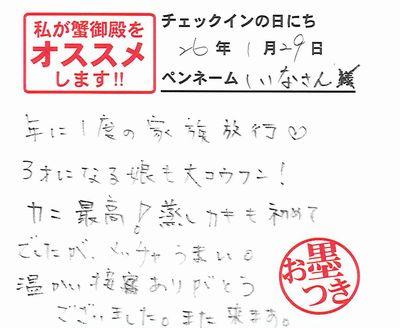 私が蟹御殿を
オススメ
します!!
チェックインの日にち
26年 1月29日
ペンネーム いいなさん 様
年に1度の家族旅行♡
3才になる娘も大コウフン!
カニ最高!蒸しカキも初めて
でしたが、メッチャうまい。
温かい接客ありがとう
ございました。また来ます。
お墨つき